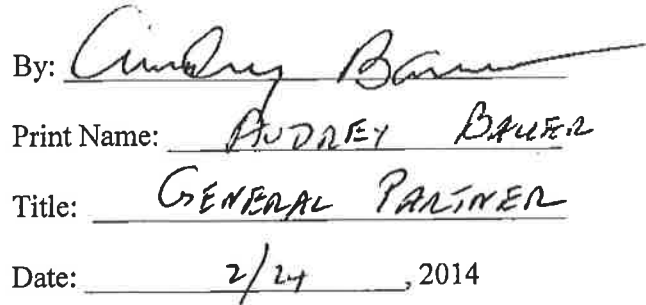 By: Audrey Bauer
Print Name: AUDREY BAUER
Title: GENERAL PARTNER
Date: 2/24, 2014